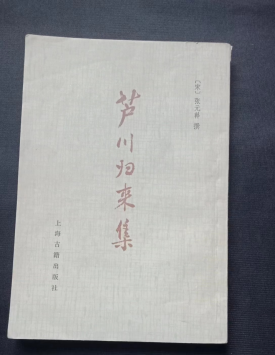 〔宋〕张元幹 撰
芦川归来集
上海古籍出版社